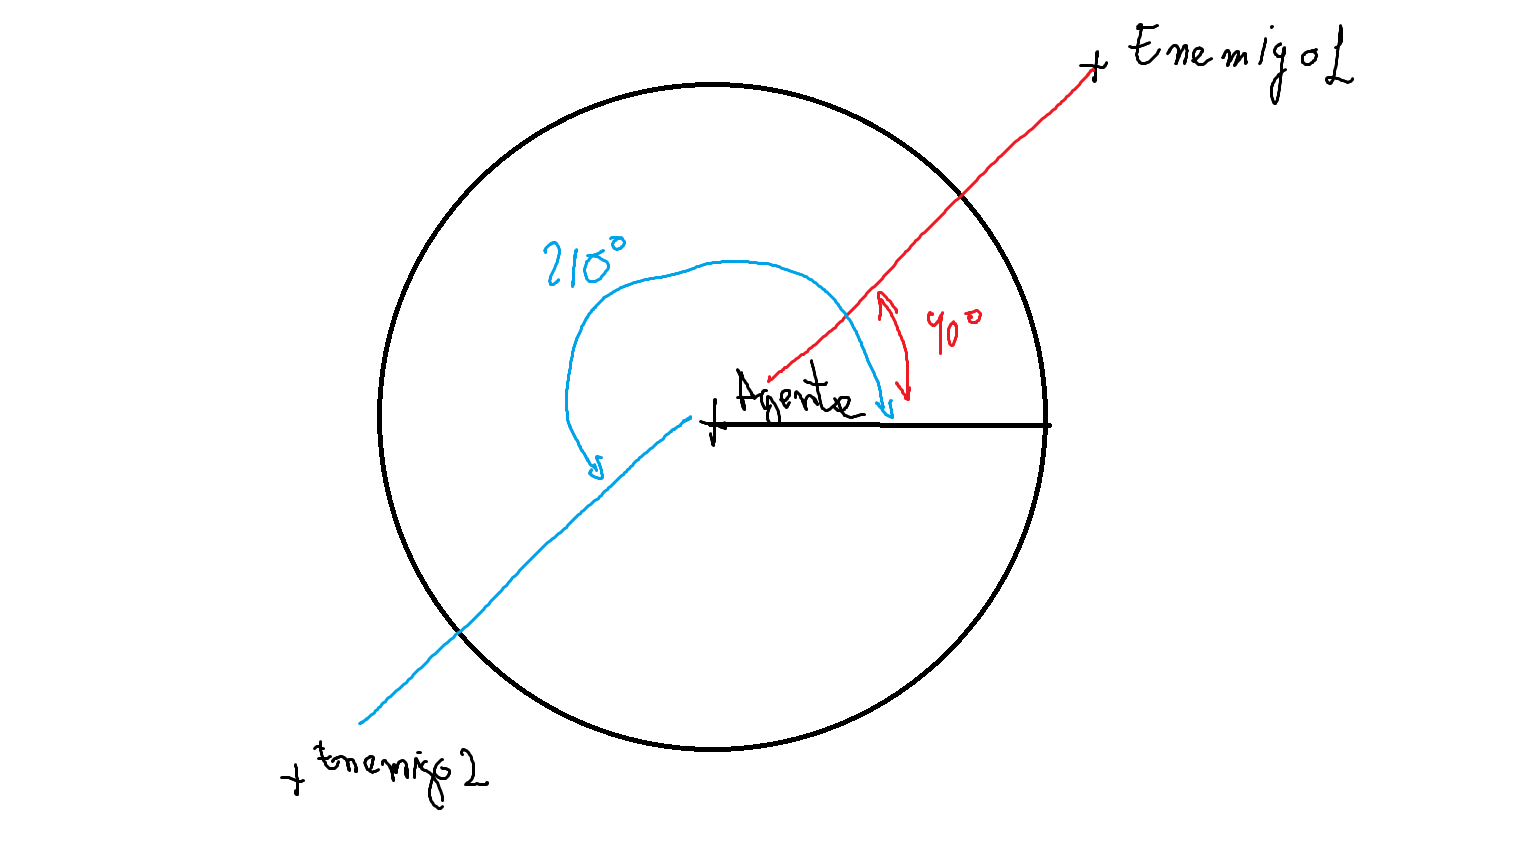 Enemigo1
210°
90°
Agente
Enemigo2